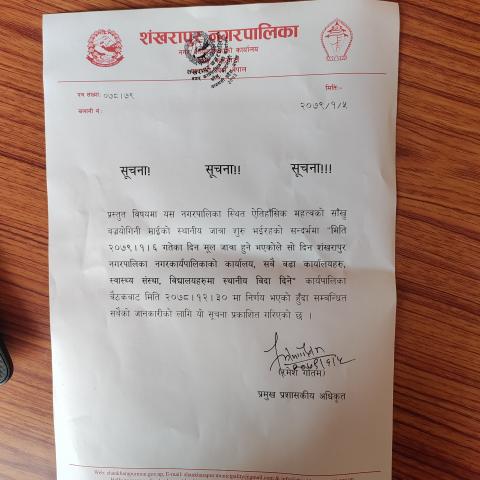 शंखरापुर नगरपालिका
नगर कार्यपालिकाको कार्यालय
नेपाल
पत्र संख्या: ०७८।७९
मितिः-
चलानी नं:
२०७९/१/५
सूचना! सूचना!! सूचना!!!
प्रस्तुत विषयमा यस नगरपालिका स्थित ऐतिहाँसिक महत्वको साँखु
बज्रयोगिनी माईको स्थानीय जात्रा शुरु भईरहको सन्दर्भमा "मिति
२०७९।१।६ गतेका दिन मूल जात्रा हुने भएकोले सो दिन शंखरापुर
नगरपालिका नगरकार्यपालिकाको कार्यालय, सबै वडा कार्यालयहरु,
स्वास्थ्य संस्था, विद्यालयहरुमा स्थानीय बिदा दिने" कार्यपालिका
बैठकबाट मिति २०७८।१२।३० मा निर्णय भएको हुँदा सम्बन्धित
सबैको जानकारीको लागि यो सूचना प्रकाशित गरिएको छ ।
२०७९/१/५
(रमेश गौतम)
प्रमुख प्रशासकीय अधिकृत